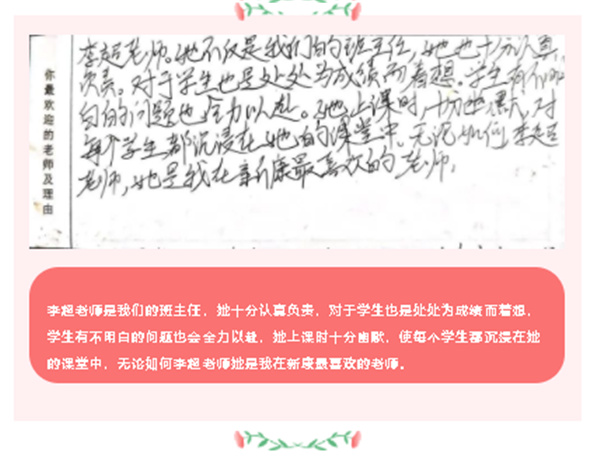 你最欢迎的老师及理由
李超老师。她不仅是我们的班主任,她也十分认真
负责。对于学生也是处处为成绩而着想。学生有不明
白的问题也全力以赴。她上课时,十分幽默,对
每个学生都沉浸在她的课堂中。无论如何,李超
老师,她是我在新康最喜欢的老师。
李超老师是我们的班主任,她十分认真负责,对于学生也是处处为成绩而着想,
学生有不明白的问题也会全力以赴,她上课时十分幽默,使每个学生都沉浸在她
的课堂中,无论如何李超老师她是我在新康最喜欢的老师。